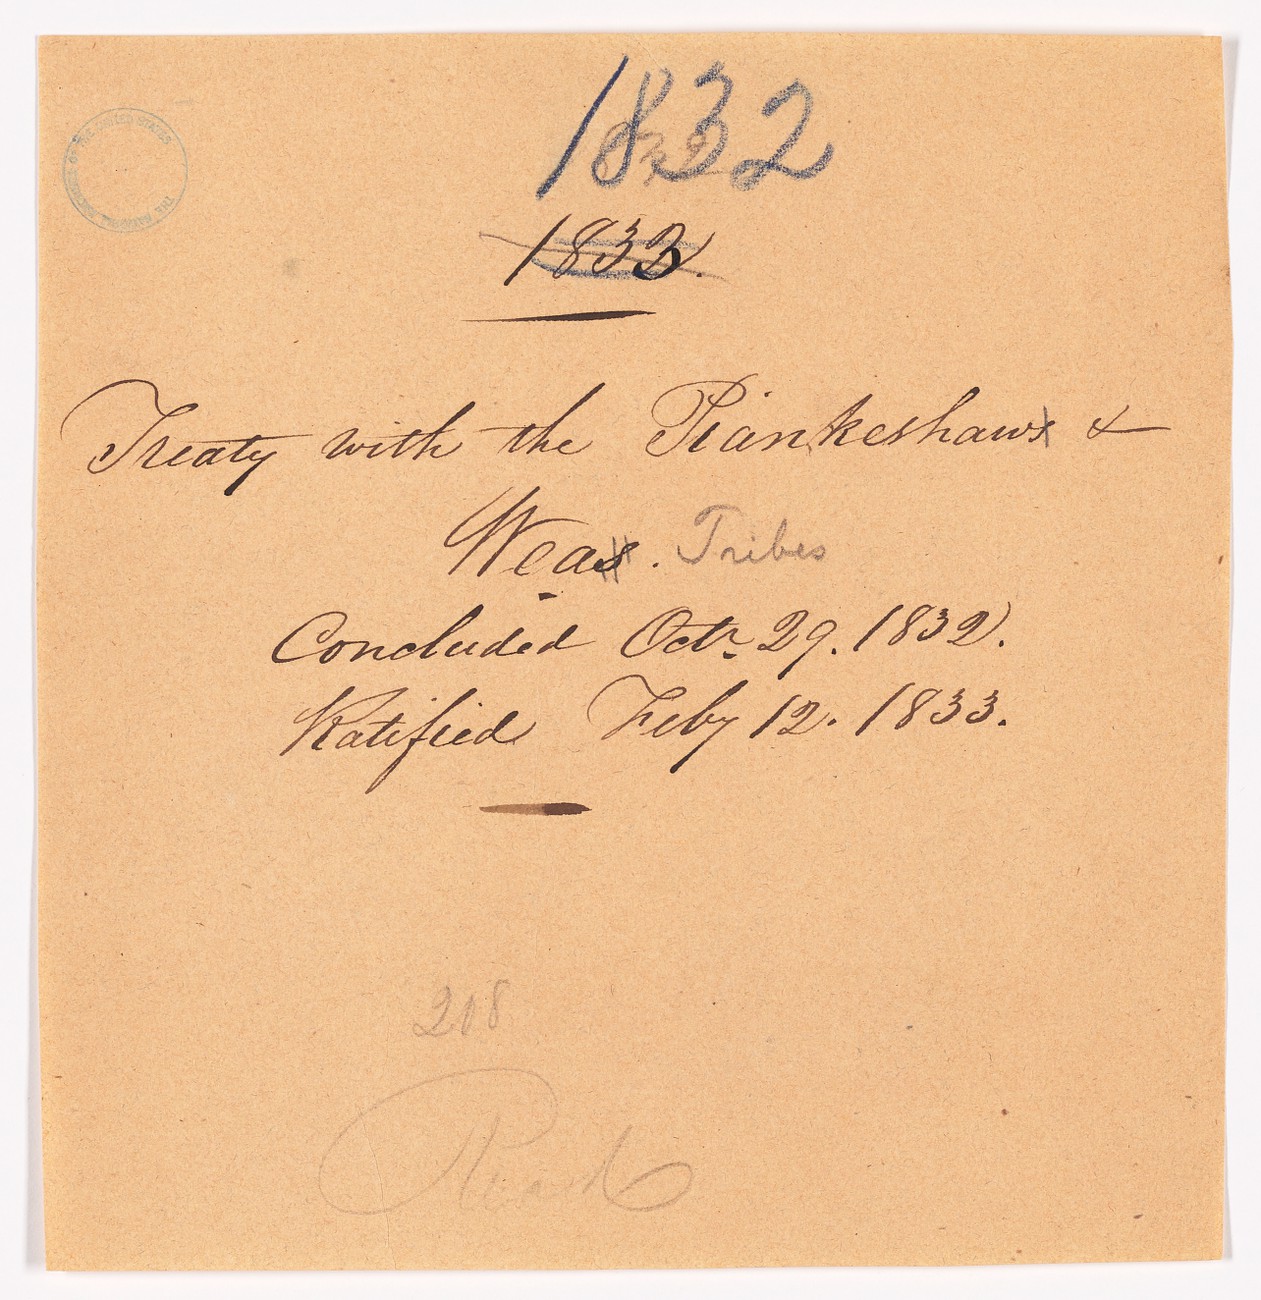 1832
1832.
THE NATIONAL ARCHIVES OF THE UNITED STATES
Treaty with the Piankeshaws &
Weas. Tribes
Concluded Octr. 29. 1832.
Ratified Feby 12. 1833.
208
Read